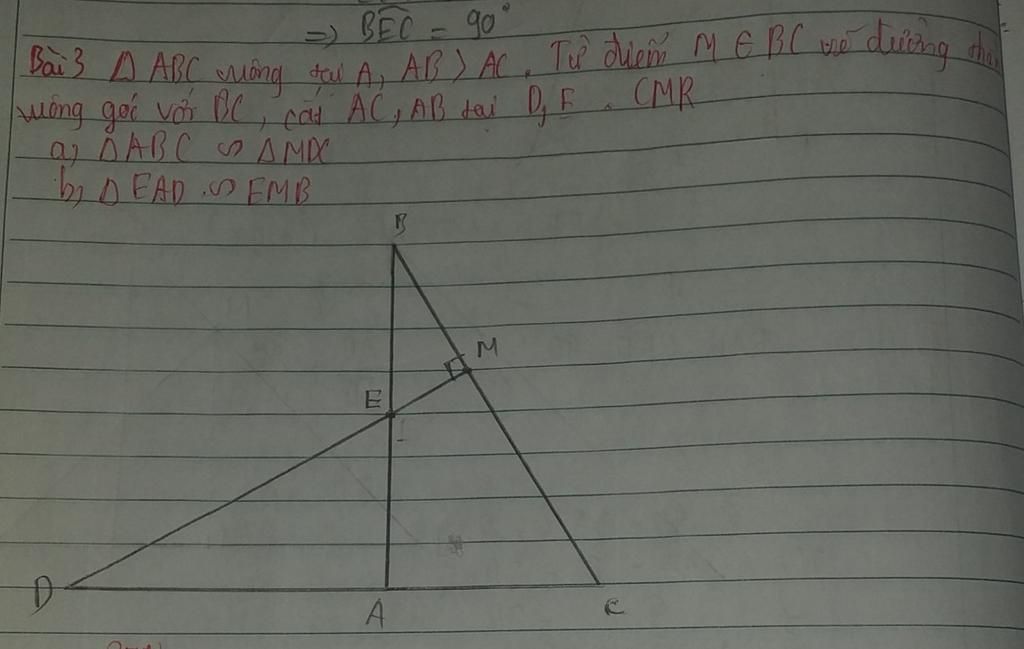 => BEC = 90°
Bài 3 Δ ABC vuông tại A, AB > AC. Từ điểm M ∈ BC vẽ đường
vuông góc với BC, cắt AC, AB tại D, E. CMR
a, ΔABC ∽ ΔMDC
b, Δ EAD ∽ EMB
B
M
E
D
A
C